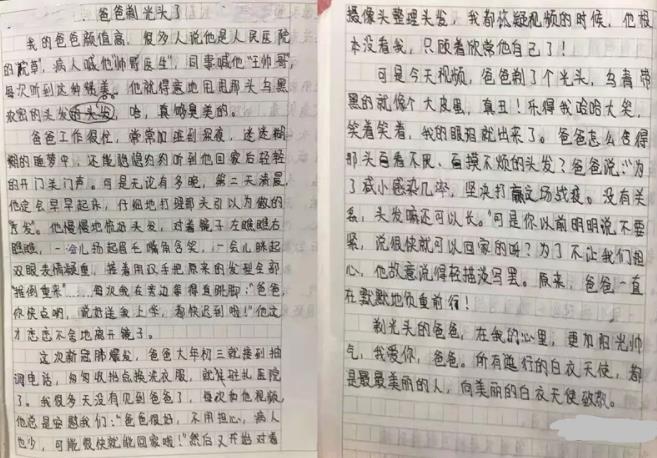 爸爸剃光头了
我的爸爸颜值高,很多人说他是人民医院
的"院草",病人喊他"帅哥医生",同事喊他"汪帅哥"
每次听到这种赞美。他就得意地甩甩那头乌黑
浓密的头发的头发,哈,真够臭美的。
爸爸工作很忙,常常加班到深夜,迷迷糊
糊的睡梦中,还能隐隐约约听到他回家后轻轻
的开门关门声。可是无论有多晚,第二天清晨
他定会早早起床,仔细地打理那头引以为傲的
秀发。他慢慢地梳好头发,对着镜子左瞧瞧右
瞧瞧,一会儿扬起眉毛嘴角含笑,一会儿眯起
双眼表情凝重,接着用双手把原来的发型全部
"推倒重来"……每次我在旁边等得直跳脚:"爸爸,
你快点哟,说好送我上学,看快迟到啦!"他这
才恋恋不舍地离开镜子。
这次新冠肺爆发,爸爸大年初三就接到抽
调电话,匆匆收拾点换洗衣服,就驻扎医院
了。我很多天没有见到爸爸了,每次和他视频,
他总是安慰我们:"爸爸很好,不用担心,病人
也少,可能很快就能回家啦!"然后又开始对着
摄像头整理头发,我都怀疑视频的时候,他根
本没看我,只顾着欣常他自己了!
可是今天视频,爸爸剃了个光头,乌青带
黑的就像个大皮蛋,真丑!乐得我哈哈大笑,
笑着笑着,我的眼泪就出来了。爸爸怎么舍得
那头百看不厌、百摸不烦的头发?爸爸说:"为
了减小感染几率,坚决打赢这场战疫。没有关
系,头发嘛还可以长。"可是你以前明明说不要
紧,说很快就可以回家的呀?为了不让我们担
心,他故意说得轻描淡写罢。原来,爸爸一直
在默默地负重前行!
剃光头的爸爸,在我的心里,更加阳光帅
气,我爱你,爸爸。所有逆行的白衣天使,都
是最最美丽的人,向美丽的白衣天使致敬。